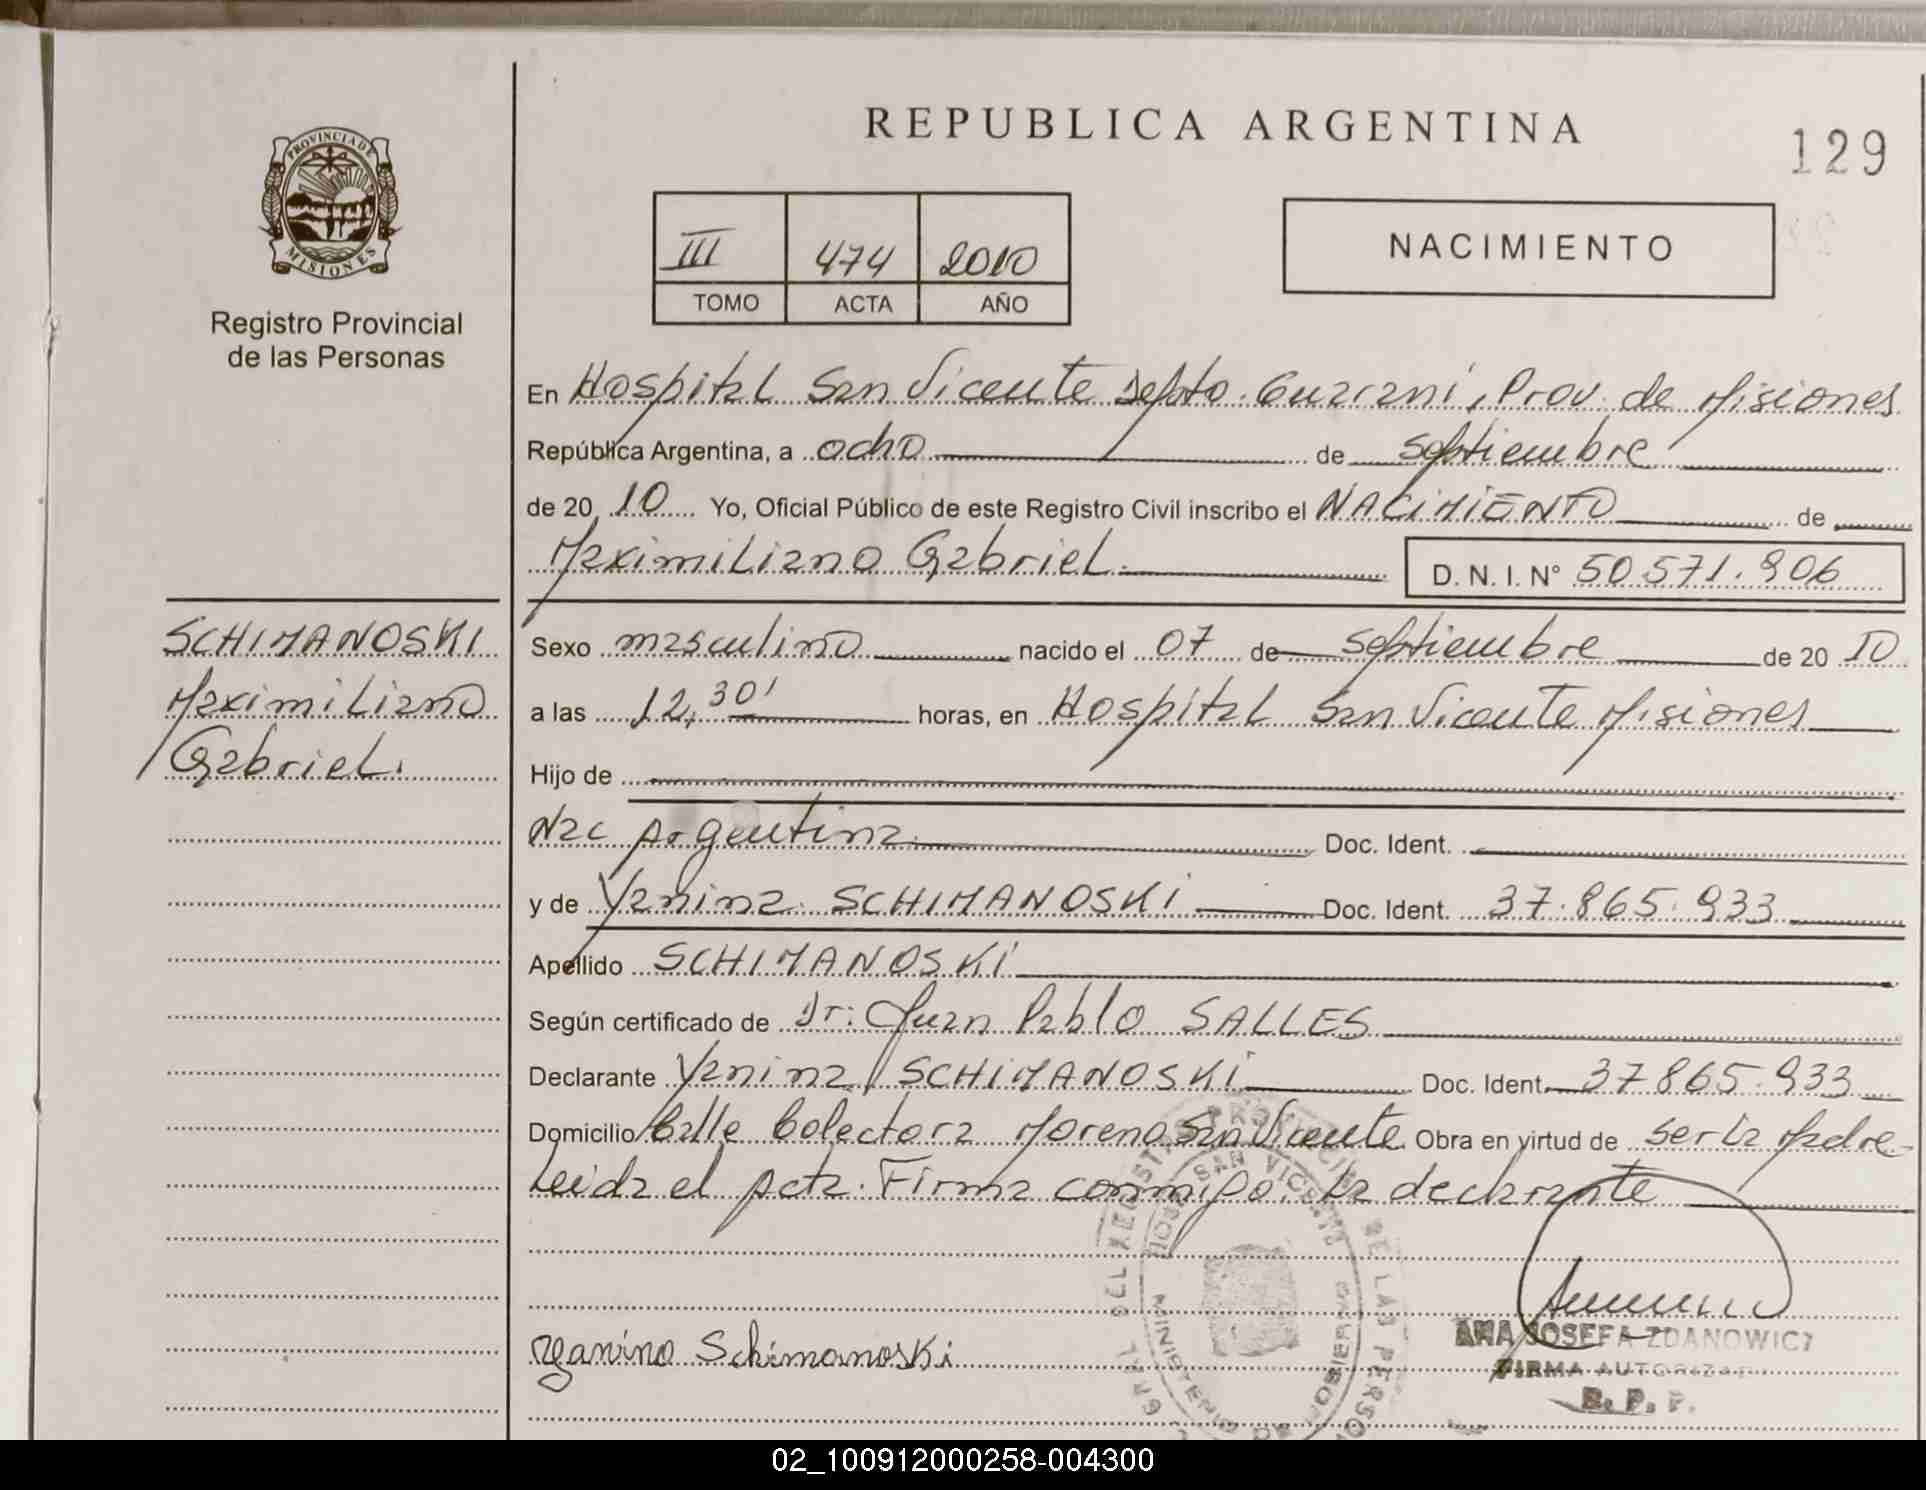 REPUBLICA ARGENTINA
129
PROVINCIA DE
MISIONES
Registro Provincial
de las Personas
III 474 2010
TOMO ACTA AÑO
NACIMIENTO
En Hospital San Vicente Depto. Guarani, Prov. de Misiones
República Argentina, a ocho de Septiembre
de 20 10 Yo, Oficial Público de este Registro Civil inscribo el NACIMIENTO de
Maximiliano Gabriel. D. N. I. N° 50.571.906
SCHIMANOSKI
Maximiliano
Gabriel.
Sexo masculino nacido el 07 de Septiembre de 20 10
a las 12,30' horas, en Hospital San Vicente Misiones
Hijo de
Nac Argentina Doc. Ident.
y de Yanina SCHIMANOSKI Doc. Ident. 37.865.933
Apellido SCHIMANOSKI
Según certificado de Dr: Juan Pablo SALLES
Declarante Yanina SCHIMANOSKI Doc. Ident. 37865.933
Domicilio Calle Colectora Moreno San Vicente. Obra en virtud de ser la Madre-
Leida el Acta. Firma conmigo. La declarante
Yanina Schimanoski
ANA JOSEFA ZDANOWICZ
FIRMA AUTORIZADA
R. P. P.
HOSP. SAN VICENTE
02_100912000258-004300